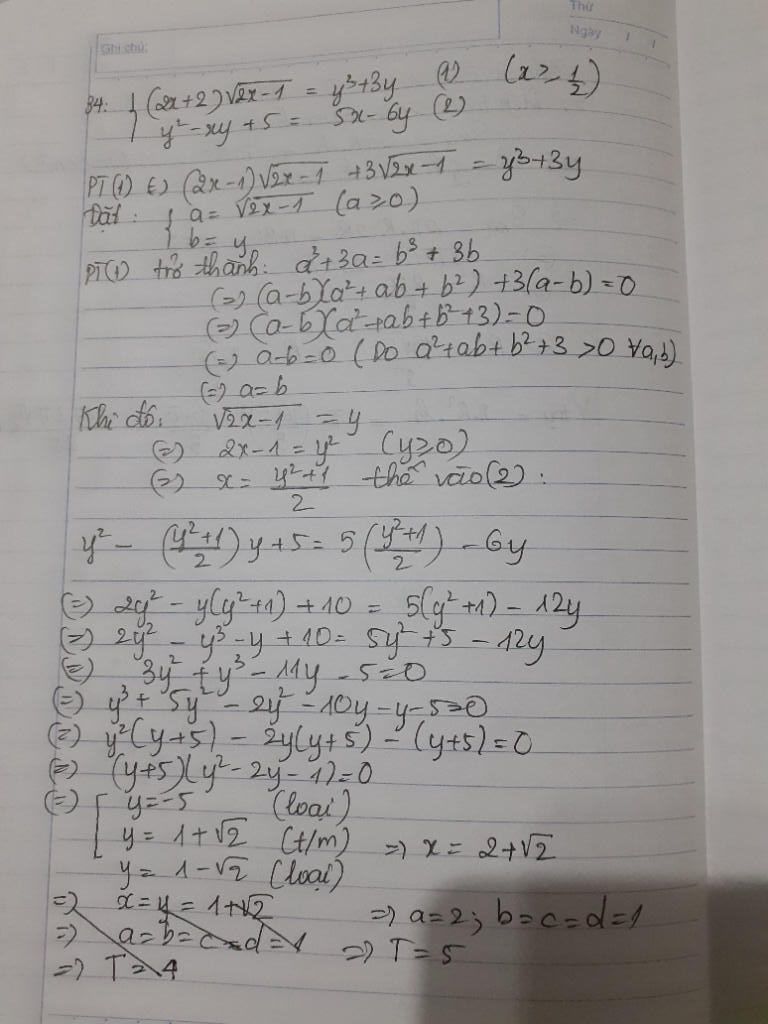 Thứ
Ngày / /
Ghi chú:
34: { (2x+2)√(2x-1) = y³+3y (1) (x ≥ 1/2)
y² - xy + 5 = 5x - 6y (2)
PT(1) (=) (2x-1)√(2x-1) + 3√(2x-1) = y³+3y
Đặt: { a = √(2x-1) (a ≥ 0)
b = y
PT(1) trở thành: a³+3a = b³+3b
(=) (a-b)(a²+ab+b²) + 3(a-b) = 0
(=) (a-b)(a²+ab+b²+3) = 0
(=) a-b = 0 (Do a²+ab+b²+3 > 0 ∀a,b)
(=) a = b
Khi đó: √(2x-1) = y
(=) 2x-1 = y² (y ≥ 0)
(=) x = (y²+1)/2 thế vào (2):
y² - ((y²+1)/2) y + 5 = 5((y²+1)/2) - 6y
(=) 2y² - y(y²+1) + 10 = 5(y²+1) - 12y
(=) 2y² - y³ - y + 10 = 5y² + 5 - 12y
(=) 3y² + y³ - 11y - 5 = 0
(=) y³ + 5y² - 2y² - 10y - y - 5 = 0
(=) y²(y+5) - 2y(y+5) - (y+5) = 0
(=) (y+5)(y² - 2y - 1) = 0
(=) [ y = -5 (loại)
y = 1+√2 (t/m) => x = 2+√2
y = 1-√2 (loại)
=> x = y = 1+√2 => a = 2; b = c = d = 1
=> a = b = c = d = 1 => T = 5
=> T = 4